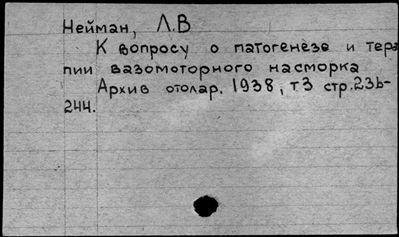 Нейман, Л.В
К вопросу о патогенезе и тера
пии вазомоторного насморка
Архив отолар. 1938, т3 стр.236-
244.